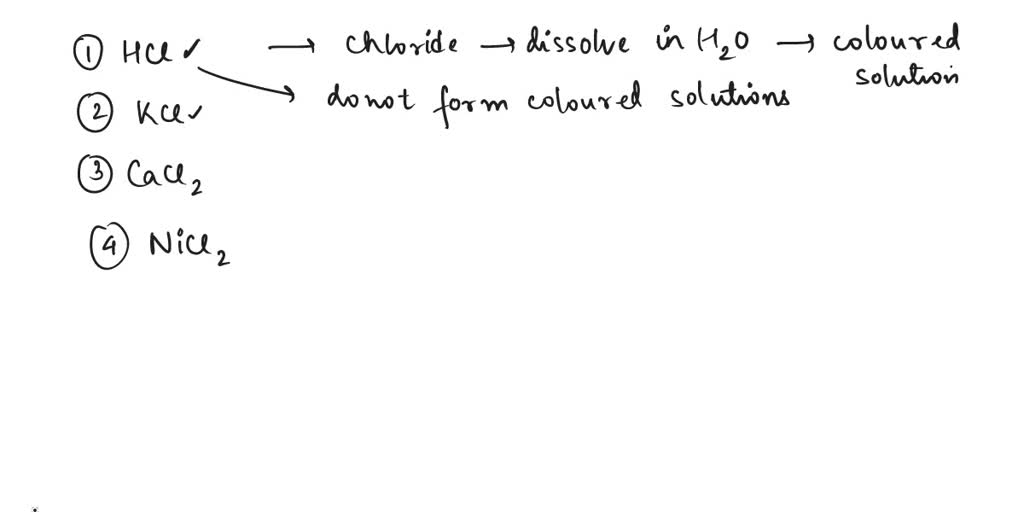 ① HCl ✓ → chloride → dissolve in H₂O → coloured
solution
② KCl ✓ → do not form coloured solutions
③ CaCl₂
④ NiCl₂